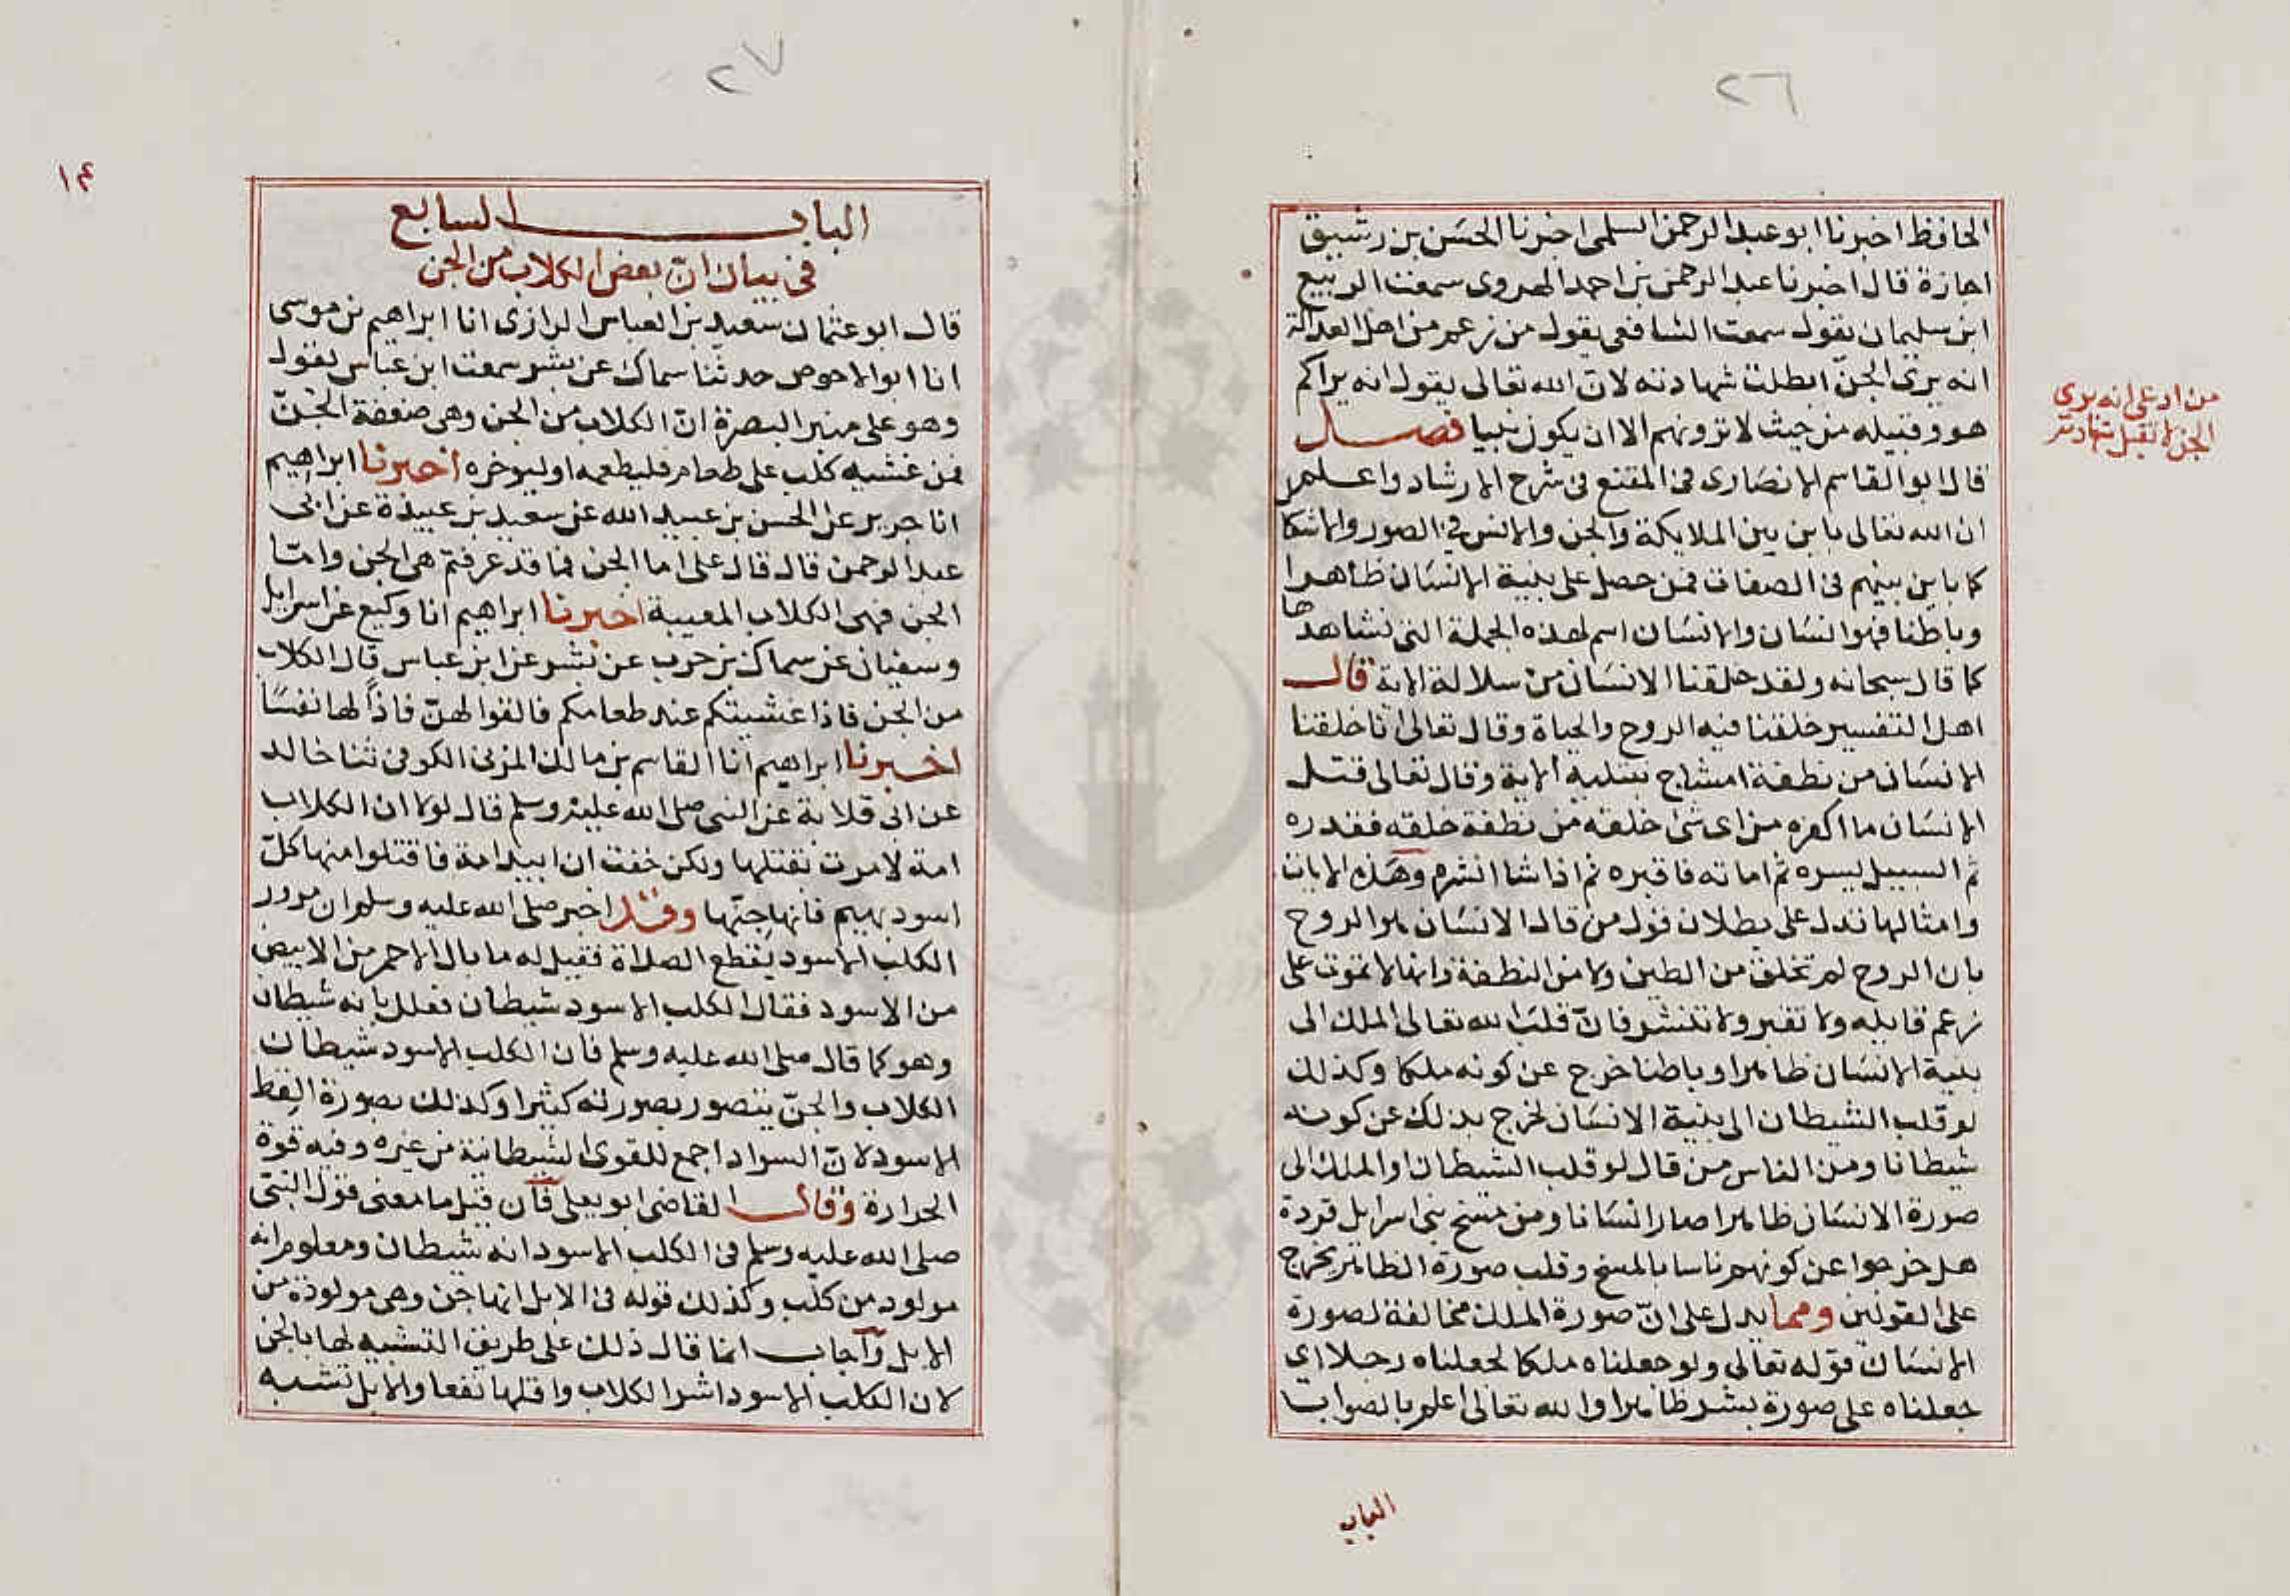 ٢٦
الحافظ اخبرنا ابو عبد الرحمن السلمى اخبرنا الحسَن بن رشيق
اجازة قال اخبرنا عبد الرحمن بن احمد الهروى سمعت الربيع
ابن سليمان يقول سمعت الشافعى يقول من زعم من اهل العدالة
انه يرى الجنّ ابطلت شهادته لانّ الله تعالى يقول انه يراكم
هو وقبيله من حيث لا ترونهم الا ان يكون نبيا فصل
من ادعى انه يرى
الجن لا تقبل شهادته
قال ابو القاسم الانصَارى فى المقنع فى شرح الارشاد واعلم
ان الله تعالى باين بين الملايكة والجن والانس فى الصور والاشكا
كما باين بينهم فى الصفات فمن حصل على بنية الانسَان ظاهرا
وباطنا فهو انسَان والانسَان اسم لهذه الجملة التى نشاهدها
كما قال سبحانه ولقد خلقنا الانسَان من سلالة الاية قال
اهل التفسير خلقنا فيه الروح والحياة وقال تعالى انا خلقنا
الانسَان من نطفة امشاج نبتليه الاية وقال تعالى قتل
الانسَان ما اكفره من اى شئ خلقه من نطفة خلقه فقدره
ثم السبيل يسره ثم اماته فاقبره ثم اذا شا انشره وهَذه الايات
وامثالها تدل على بطلان قول من قال الانسَان هو الروح
بان الروح لم تخلق من الطين ولا من النطفة وانها لا تموت على
زعم قايله ولا تقبر ولا تنشر فانّ قلبَ الله تعالى الملك الى
بنية الانسَان ظاهرا وباطنا خرج عن كونه ملكا وكذلك
لو قلب الشيطان الى بنية الانسَان لخرج بذلك عن كونه
شيطانا ومن الناس من قال لو قلب الشيطان او الملك الى
صورة الانسَان ظاهرا صار انسَانا ومن مسخ بنى اسرايل قردة
هل خرجوا عن كونهم ناسا بالمسخ وقلب صورة الظاهر يخرج
على القولين ومما يدل على انّ صورة الملك مخالفة لصورة
الانسَان قوله تعالى ولو جعلناه ملكا لجعلناه رجلا اى
جعلناه على صورة بشر ظاهرا والله تعالى اعلم بالصواب
الباب
٢٧
١٤
الباب السابع
فى بيان انّ بعض الكلاب من الجن
قال ابو عثمان سعيد بن العباس الرازى انا ابراهيم بن موسى
انا ابو الاحوص حدثنا سماك عن بشر سمعت ابن عباس يقول
وهو على منبر البصرة انّ الكلاب من الجن وهى ضعفة الجنّ
فمن غشيه كلب على طعام فليطعمه او ليوخره اخبرنا ابراهيم
انا جرير عن الحسن بن عبيد الله عن سعيد بن عبيدة عن ابى
عبد الرحمن قال قال على اما الجن فما قد عرفتم هى الجن وامّا
الجن فهى الكلاب المعيبة اخبرنا ابراهيم انا وكيع عن اسرايل
وسفيان عن سماك بن حرب عن بشر عن ابن عباس قال الكلاب
من الجن فاذا غشيتكم عند طعامكم فالقوا لهنّ فاذاً لها نفسًا
اخبرنا ابراهيم انا القاسم بن مالك المزنى الكوفى ثنا خالد
عن ابى قلابة عن النبى صلى الله عليه وسلم قال لولا ان الكلاب
امة لامرت بقتلها ولكن خفت ان ابيد امة فاقتلوا منها كلّ
اسود بهيم فانها جنّها وقد اخبر صلى الله عليه وسلم ان مرور
الكلب الاسود يقطع الصلاة فقيل له ما بال الاحمر من الابيض
من الاسود فقال الكلب الاسود شيطان فعلل بانه شيطان
وهو كما قال صلى الله عليه وسلم فان الكلب الاسود شيطان
الكلاب والجنّ يتصور بصورته كثيرا وكذلك بصورة القط
الاسود لانّ السواد اجمع للقوى الشيطانية من غيره وفيه قوة
الحرارة وقال القاضى ابو يعلى فان قيل ما معنى قول النبىّ
صلى الله عليه وسلم فى الكلب الاسود انه شيطان ومعلوم انه
مولود من كلب وكذلك قوله فى الابل انها جن وهى مولودة من
الابل واجاب انما قال ذلك على طريق التشبيه لها بالجن
لان الكلب الاسود اشر الكلاب واقلها نفعا والابل تشبه